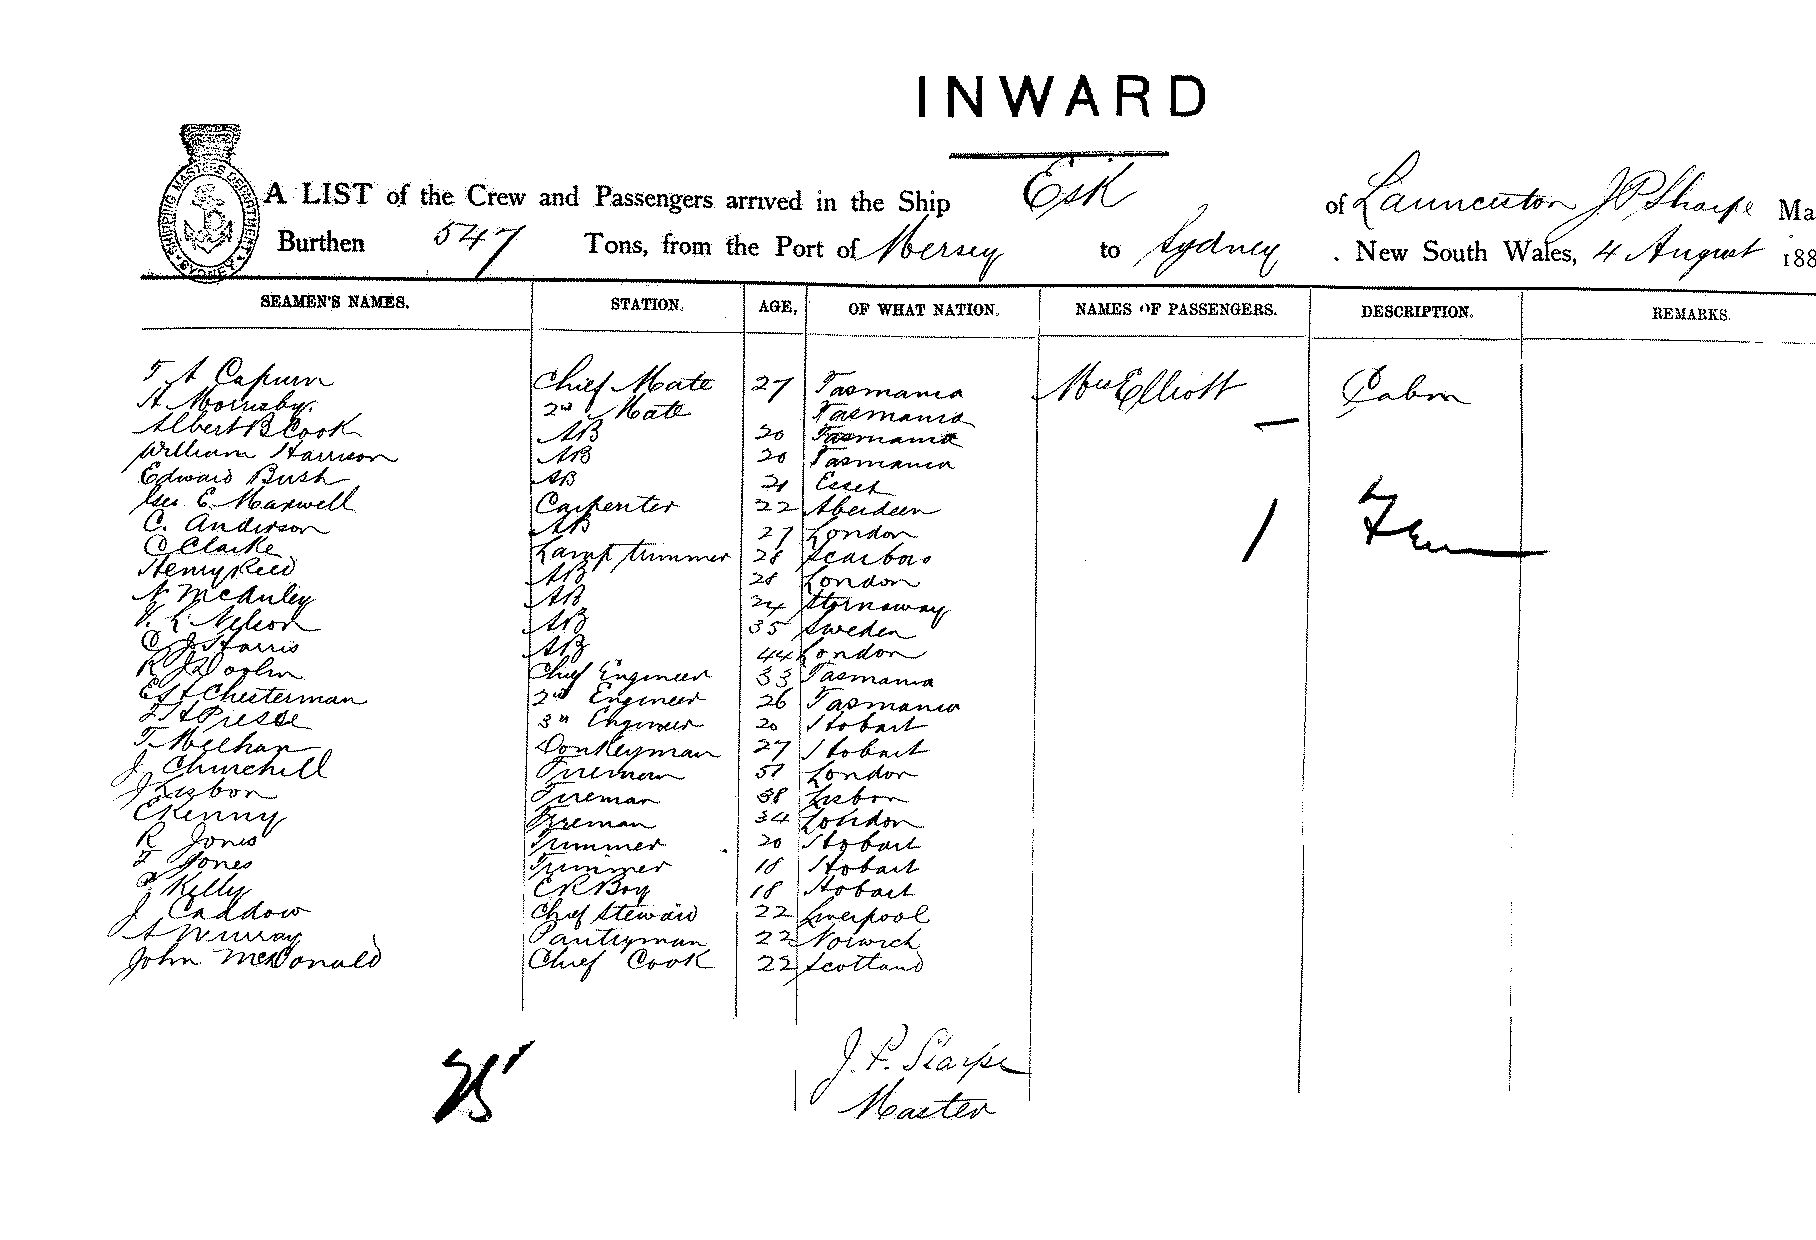 INWARD
SHIPPING MASTERS DEPARTMENT SYDNEY
A LIST of the Crew and Passengers arrived in the Ship Esk of Launceston J P Sharpe Ma
Burthen 547 Tons, from the Port of Mersey to Sydney . New South Wales, 4 August 188
SEAMEN'S NAMES. STATION. AGE. OF WHAT NATION. NAMES OF PASSENGERS. DESCRIPTION. REMARKS.
T A Capurn Chief Mate 27 Tasmania Mrs Elliott Cabin
A Mornsby. 2nd Mate Tasmania
Albert B Cook AB 20 Tasmania
William Harrison AB 20 Tasmania
Edward Bush AB 21 Essex
E. Maxwell Carpenter 22 Aberdeen
C. Anderson AB 27 London
C Clarke Lamp trimmer 28 Scarboro
Henry Reed AB 28 London
N McAuley AB 24 Stornaway
V. L. Nelson AB 35 Sweden
C J Harris AB 44 London
R J Woolin Chief Engineer 33 Tasmania
E S H Chesterman 2nd Engineer 26 Tasmania
F H Piesse 3rd Engineer 20 Hobart
T. Meehan Donkeyman 27 Hobart
J Churchill Fireman 51 London
J Lisbon Fireman 38 Lisbon
C Kenny Fireman 34 London
R Jones Trimmer 20 Hobart
F Jones Trimmer 18 Hobart
F Kelly E R Boy 18 Hobart
J Caddow Chief Steward 22 Liverpool
A Murray Pantryman 22 Norwich
John McDonald Chief Cook 22 Scotland
1
25
J. P. Sharpe
Master